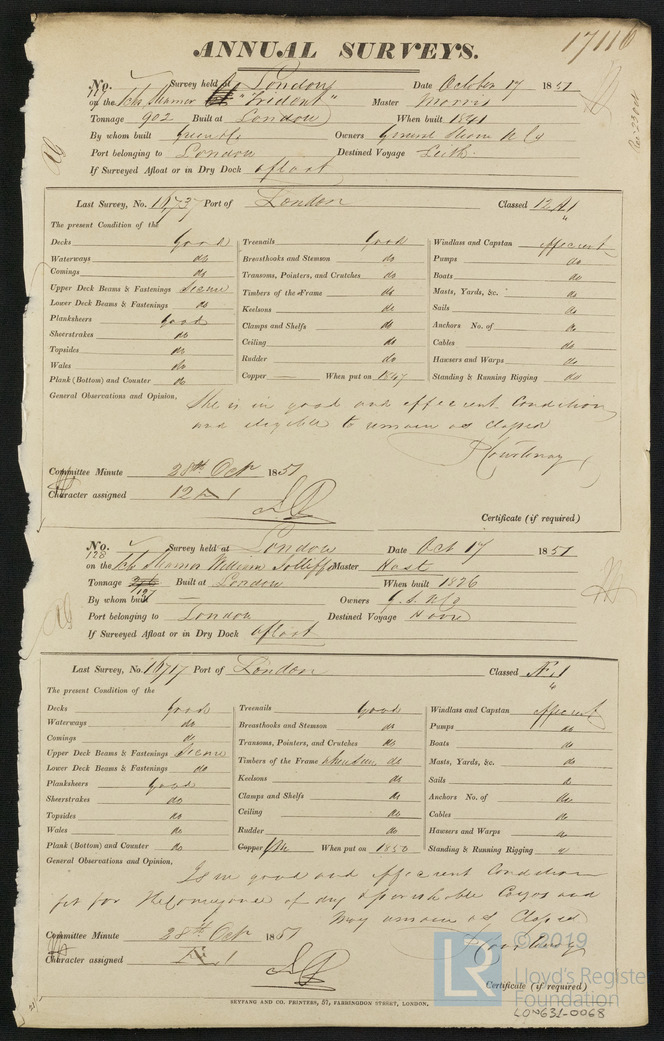 17116
ANNUAL SURVEYS.
No. Survey held at London Date October 17 1851
on the Steamer "Trident" Master Morris
Tonnage 902 Built at London When built 1841
By whom built Green & Co Owners General Steam N Co
Port belonging to London Destined Voyage Leith
If Surveyed Afloat or in Dry Dock afloat
Last Survey, No. Port of London Classed 12 A 1
The present Condition of the
Decks Good Treenails Good Windlass and Capstan efficient
Waterways do Breasthooks and Stemson do Pumps do
Comings do Transoms, Pointers, and Crutches do Boats do
Upper Deck Beams & Fastenings Secure Timbers of the Frame do Masts, Yards, &c. do
Lower Deck Beams & Fastenings do Keelsons do Sails do
Planksheers Good Clamps and Shelfs do Anchors No. of do
Sheerstrakes do Ceiling do Cables do
Topsides do Rudder do Hawsers and Warps do
Wales do Copper When put on 1847 Standing & Running Rigging do
Plank (Bottom) and Counter do
General Observations and Opinion,
She is in good and efficient Condition
and eligible to remain as Classed
Courtenay
Committee Minute 28th Oct 1851
Character assigned 12 A 1
Certificate (if required)
No. Survey held at London Date Oct 17 1851
128
on the Steamer William Jolliffe Master Hast
Tonnage Built at London When built 1826
197
By whom built — Owners G. S. N Co
Port belonging to London Destined Voyage Havre
If Surveyed Afloat or in Dry Dock afloat
Last Survey, No. Port of London Classed 1
The present Condition of the
Decks Good Treenails Good Windlass and Capstan efficient
Waterways do Breasthooks and Stemson do Pumps do
Comings do Transoms, Pointers, and Crutches do Boats do
Upper Deck Beams & Fastenings Secure Timbers of the Frame do Masts, Yards, &c. do
Lower Deck Beams & Fastenings do Keelsons do Sails do
Planksheers Good Clamps and Shelfs do Anchors No. of do
Sheerstrakes do Ceiling do Cables do
Topsides do Rudder do Hawsers and Warps
Wales do Copper When put on 1850 Standing & Running Rigging
Plank (Bottom) and Counter do
General Observations and Opinion,
Is in good and efficient Condition
fit for the Conveyance of dry & perishable Cargos and
may remain as Classed
Courtenay
Committee Minute 28th Oct 1851
Character assigned 1
Certificate (if required)
SEYFANG AND CO. PRINTERS, 57, FARRINGDON STREET, LONDON.
© 2019
LR Lloyd's Register
Foundation
LON631-0068